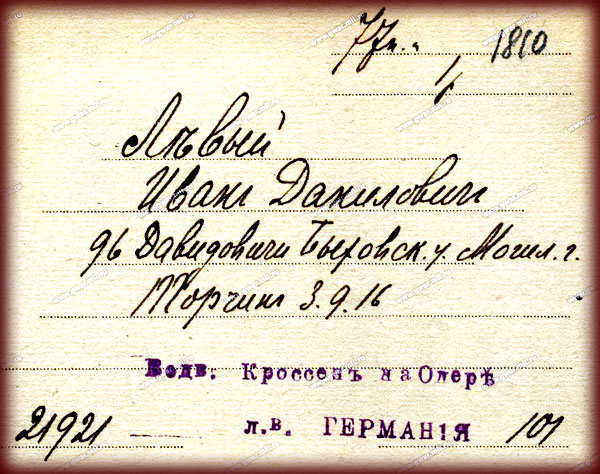 77п. 1810
1/
Лѣвый
Иванъ Данилович
96 Давидовичи Быховск. у. Могил. г.
Торчинъ 3.9.16
Водв. Кроссенъ на Одерѣ
21921 л.в. ГЕРМАНІЯ 101